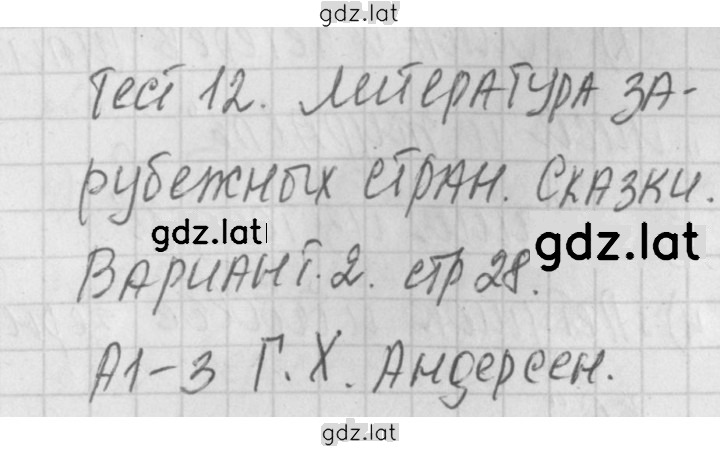 gdz.lat
Тест 12. Литература за-
рубежных стран. Сказки.
gdz.lat
gdz.lat
Вариант. 2. стр 28.
А1-3 Г. Х. Андерсен.
gdz.lat